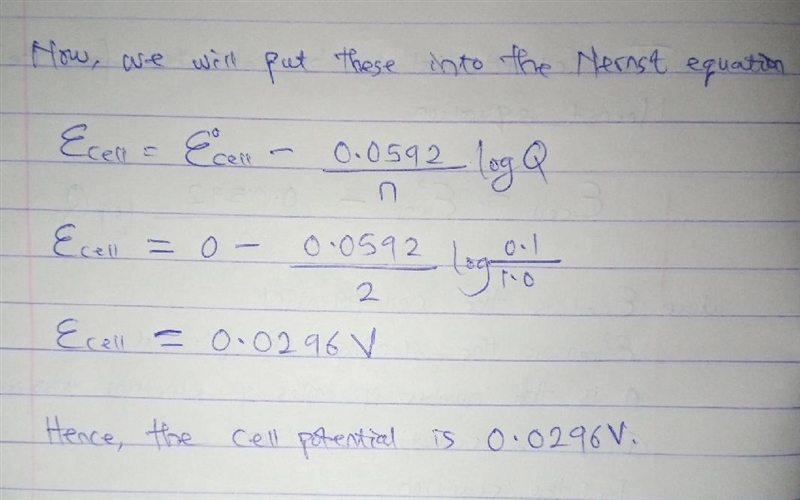 Now, we will put these into the Nernst equation
Ecell = E°cell - 0.0592/n log Q
Ecell = 0 - 0.0592/2 log 0.1/1.0
Ecell = 0.0296 V
Hence, the cell potential is 0.0296 V.